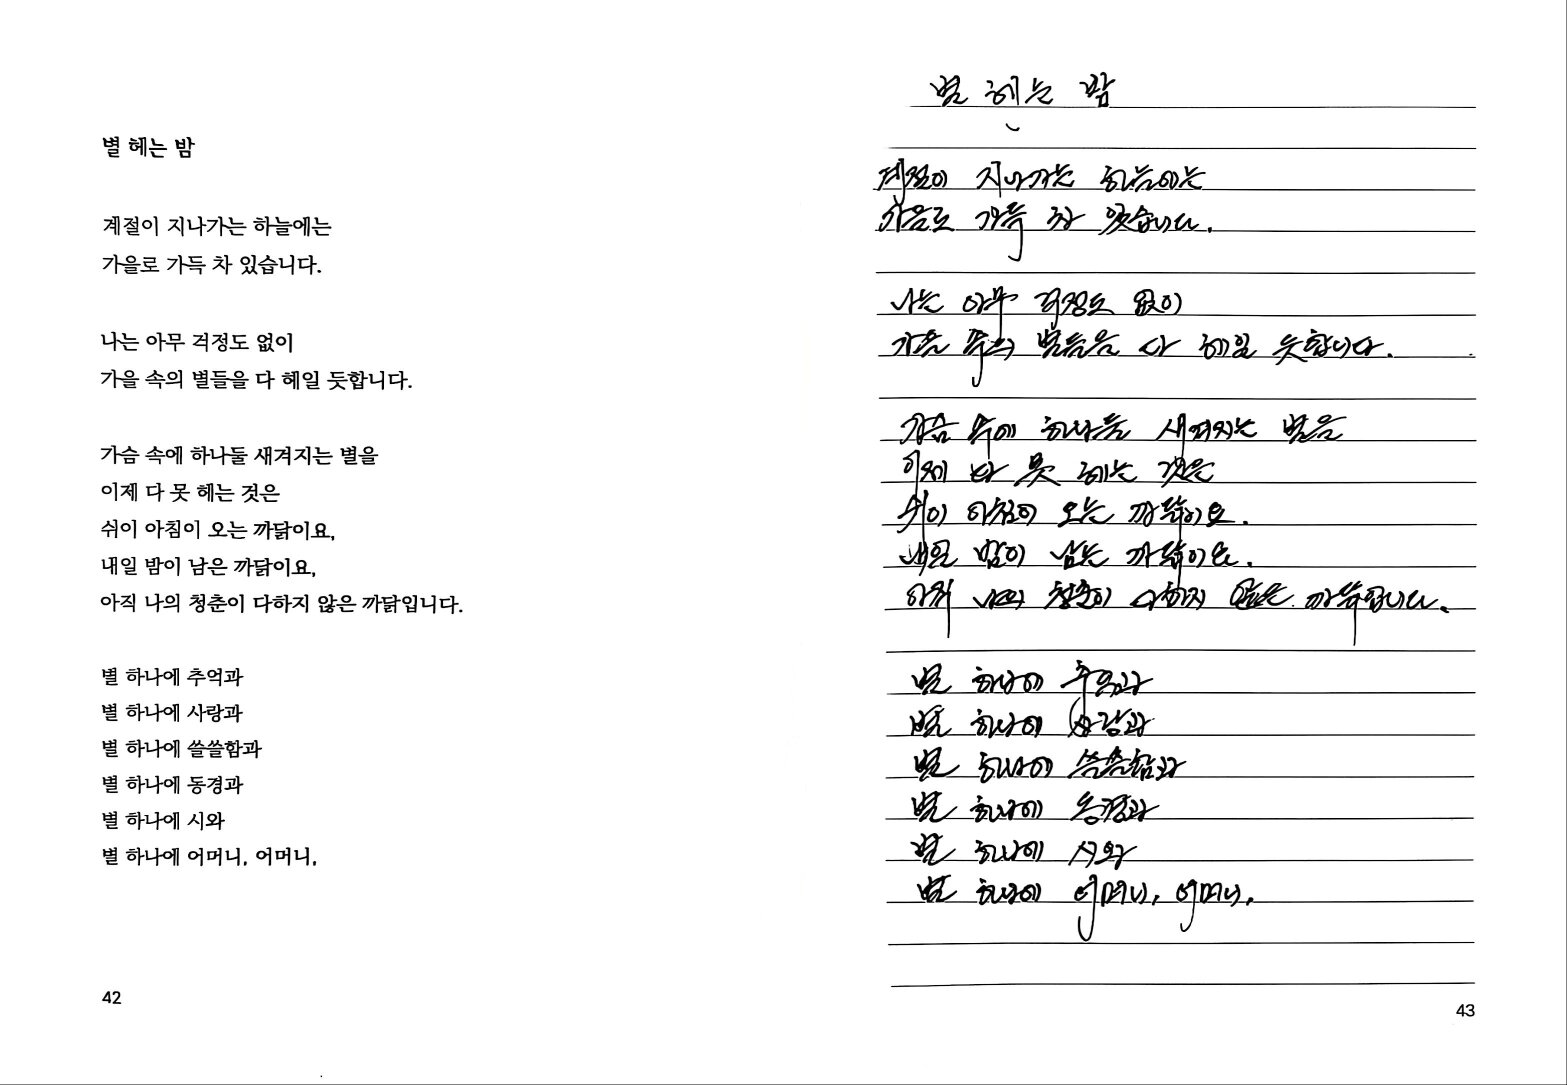 별 헤는 밤
계절이 지나가는 하늘에는
가을로 가득 차 있습니다.
나는 아무 걱정도 없이
가을 속의 별들을 다 헤일 듯합니다.
가슴 속에 하나둘 새겨지는 별을
이제 다 못 헤는 것은
쉬이 아침이 오는 까닭이요,
내일 밤이 남은 까닭이요,
아직 나의 청춘이 다하지 않은 까닭입니다.
별 하나에 추억과
별 하나에 사랑과
별 하나에 쓸쓸함과
별 하나에 동경과
별 하나에 시와
별 하나에 어머니, 어머니,
42
별 헤는 밤
계절이 지나가는 하늘에는
가을로 가득 차 있습니다.
나는 아무 걱정도 없이
가을 속의 별들을 다 헤일 듯합니다.
가슴 속에 하나둘 새겨지는 별을
이제 다 못 헤는 것은
쉬이 아침이 오는 까닭이요.
내일 밤이 남은 까닭이요.
아직 나의 청춘이 다하지 않은 까닭입니다.
별 하나에 추억과
별 하나에 사랑과
별 하나에 쓸쓸함과
별 하나에 동경과
별 하나에 시와
별 하나에 어머니, 어머니,
43